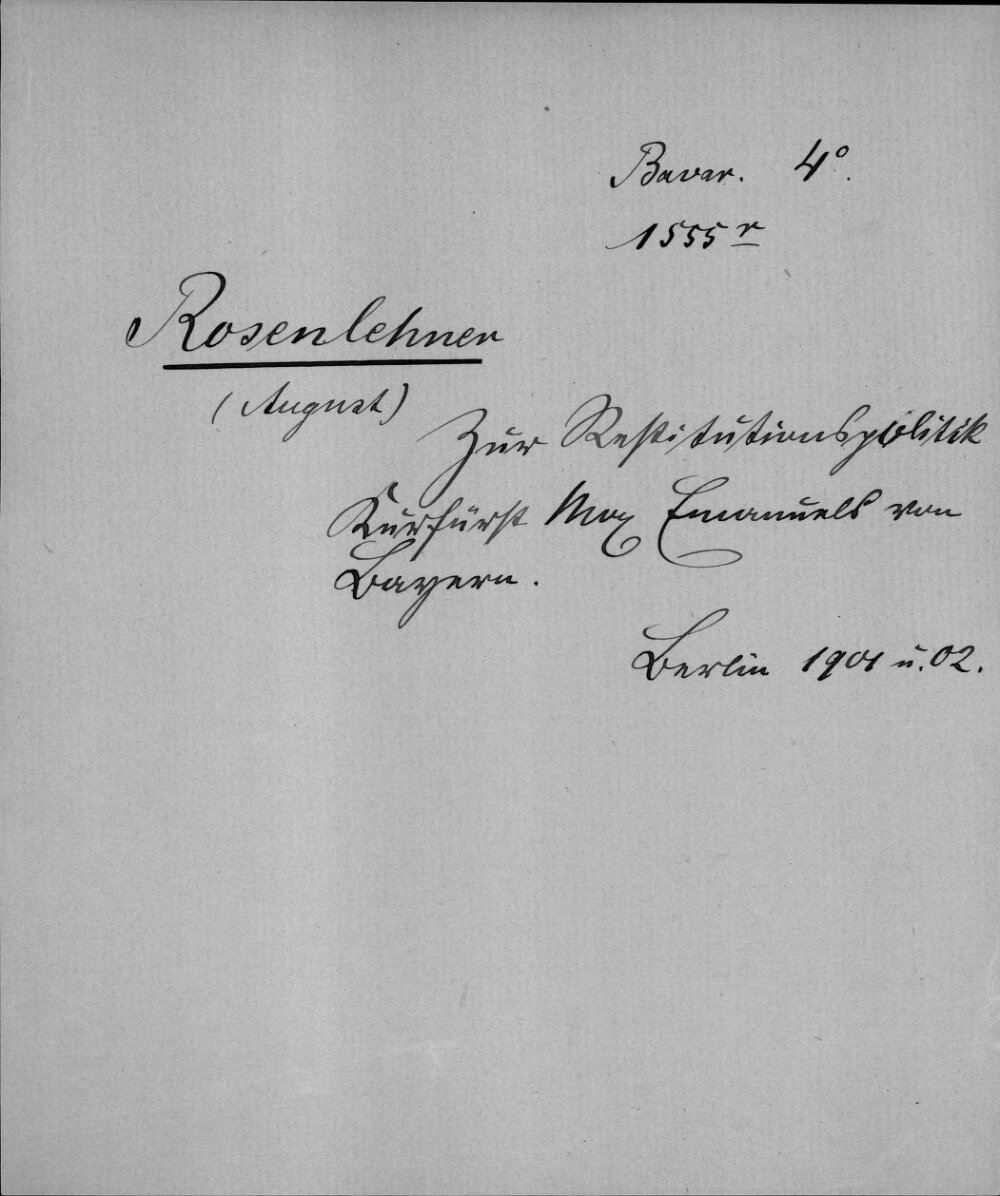 Bavar. 4°.
1555 r
Rosenlehner
(August)
Zur Restitutionspolitik
Kurfürst Max Emanuels von
Bayern.
Berlin 1901 u. 02.